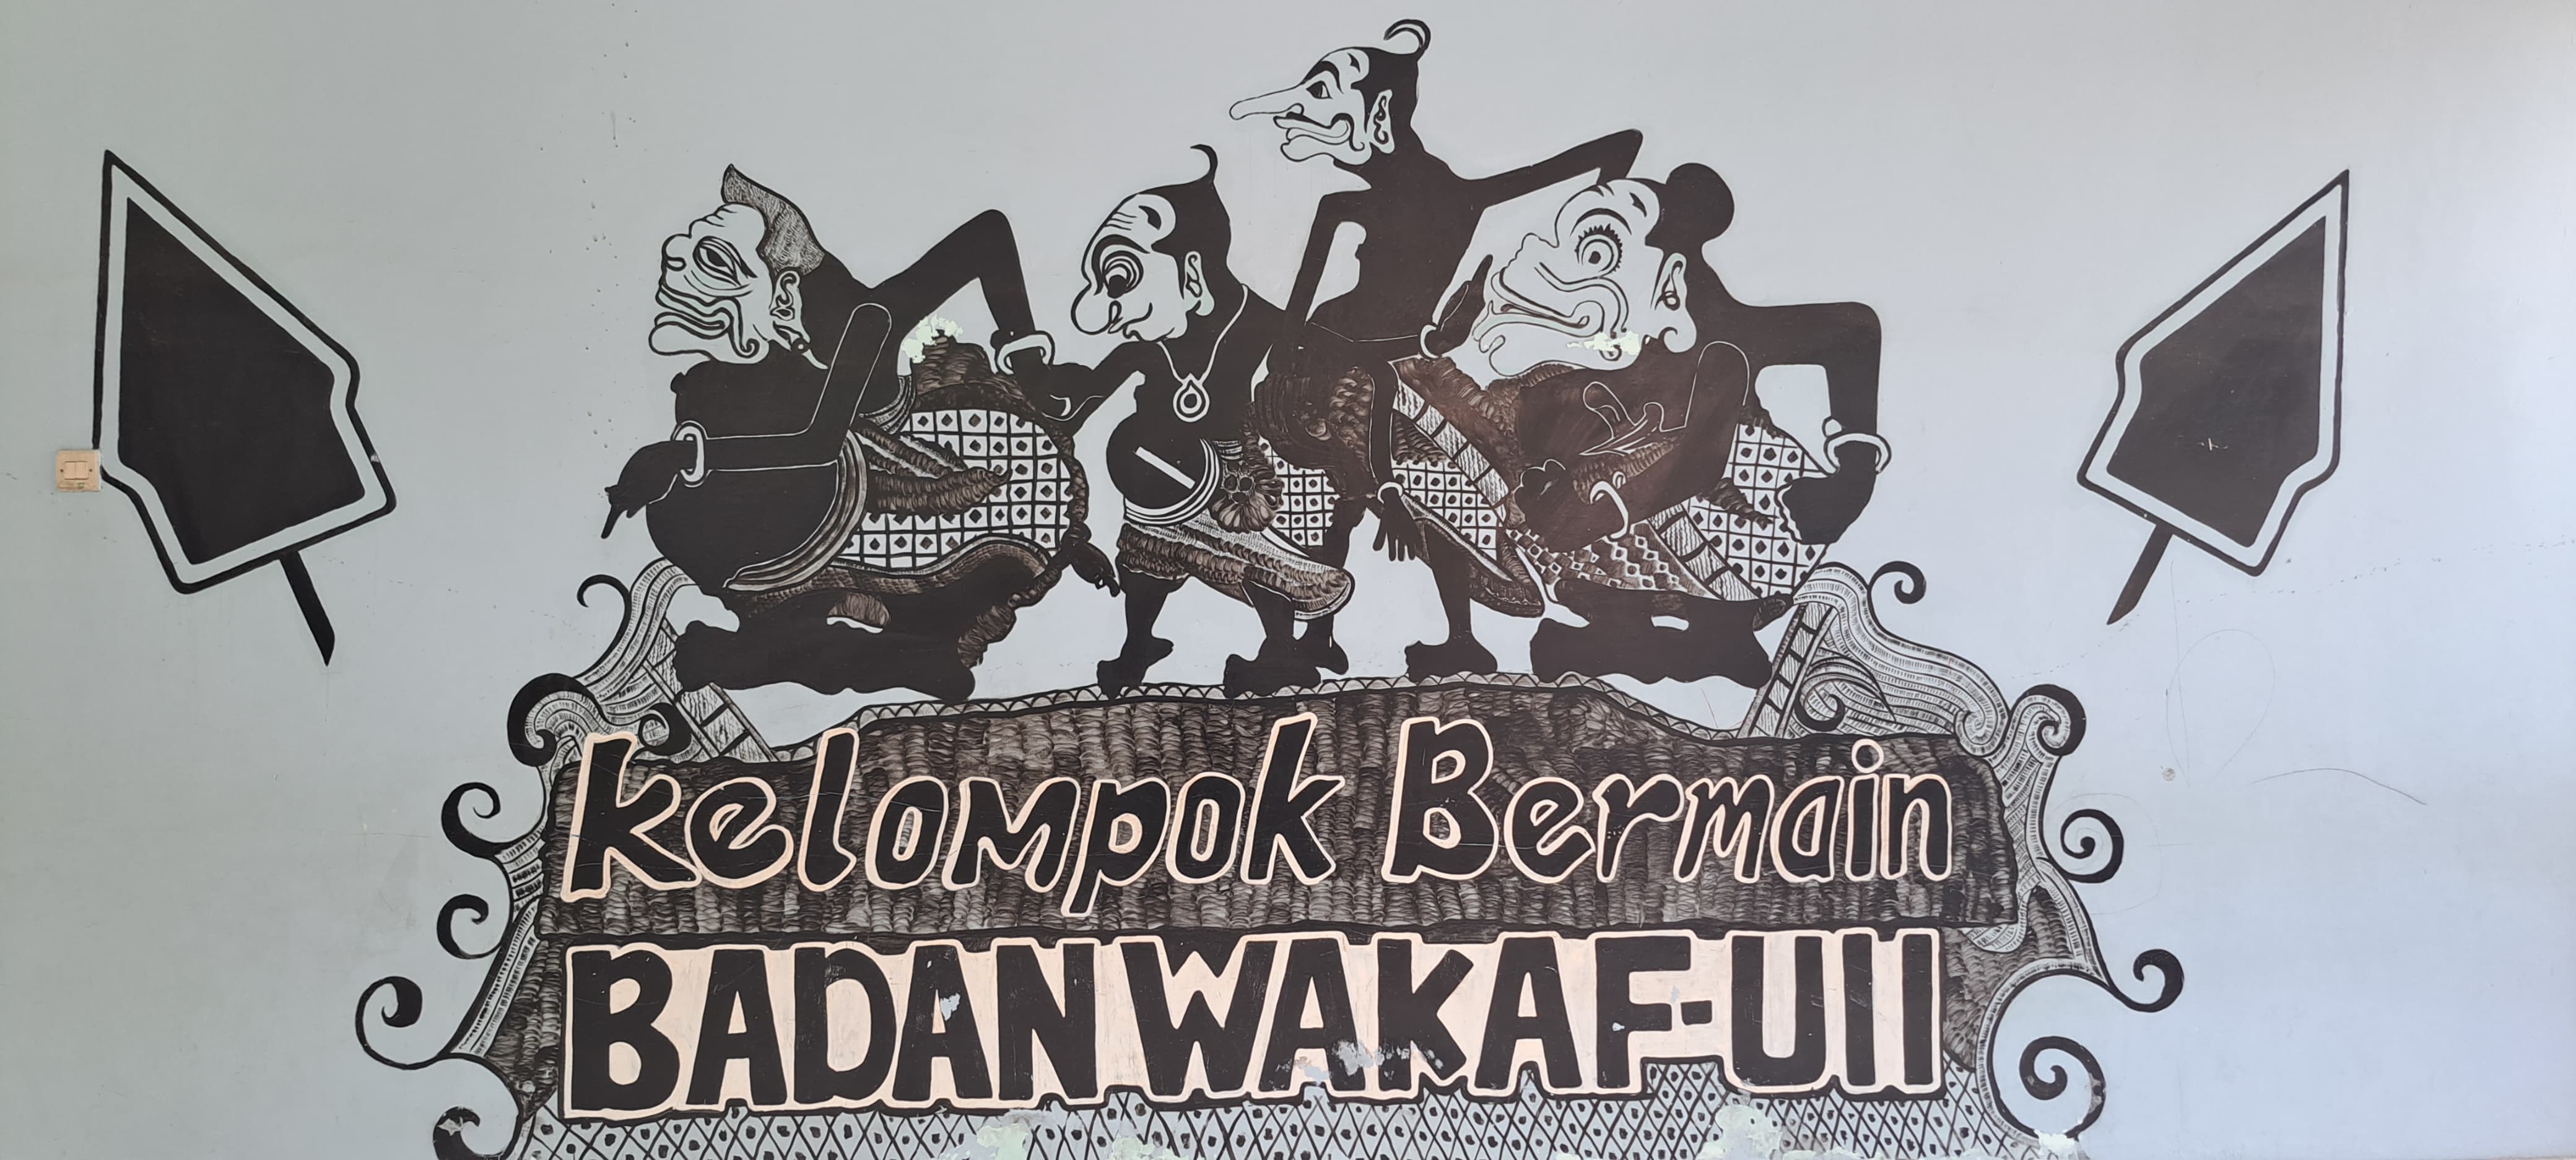 Kelompok Bermain
BADAN WAKAF-UII